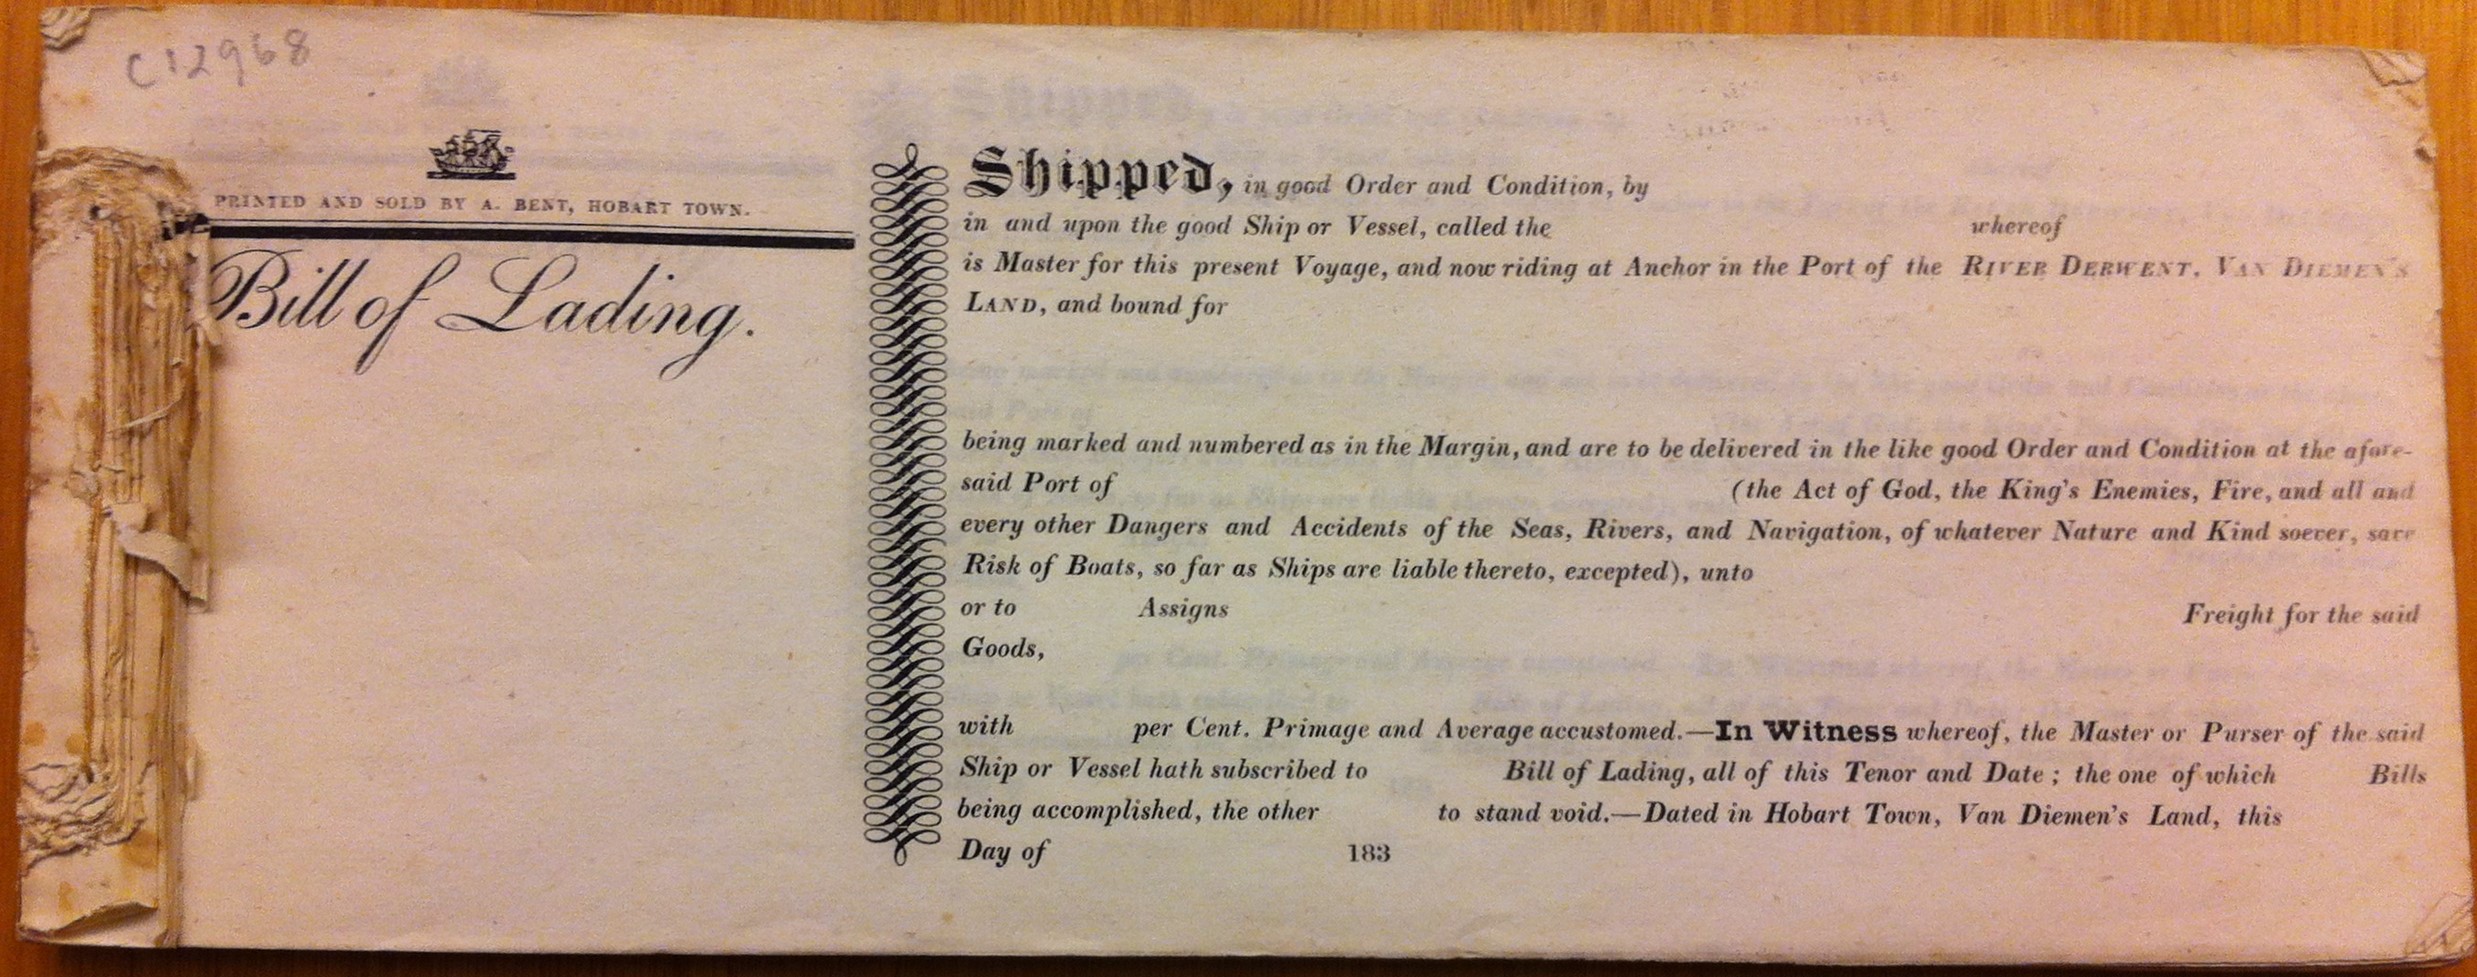 C12968
PRINTED AND SOLD BY A. BENT, HOBART TOWN.
Bill of Lading.
Shipped, in good Order and Condition, by
in and upon the good Ship or Vessel, called the whereof
is Master for this present Voyage, and now riding at Anchor in the Port of the RIVER DERWENT, VAN DIEMEN'S
LAND, and bound for
being marked and numbered as in the Margin, and are to be delivered in the like good Order and Condition at the afore-
said Port of (the Act of God, the King's Enemies, Fire, and all and
every other Dangers and Accidents of the Seas, Rivers, and Navigation, of whatever Nature and Kind soever, save
Risk of Boats, so far as Ships are liable thereto, excepted), unto
or to Assigns Freight for the said
Goods,
with per Cent. Primage and Average accustomed.—In Witness whereof, the Master or Purser of the said
Ship or Vessel hath subscribed to Bill of Lading, all of this Tenor and Date; the one of which Bills
being accomplished, the other to stand void.—Dated in Hobart Town, Van Diemen's Land, this
Day of 183